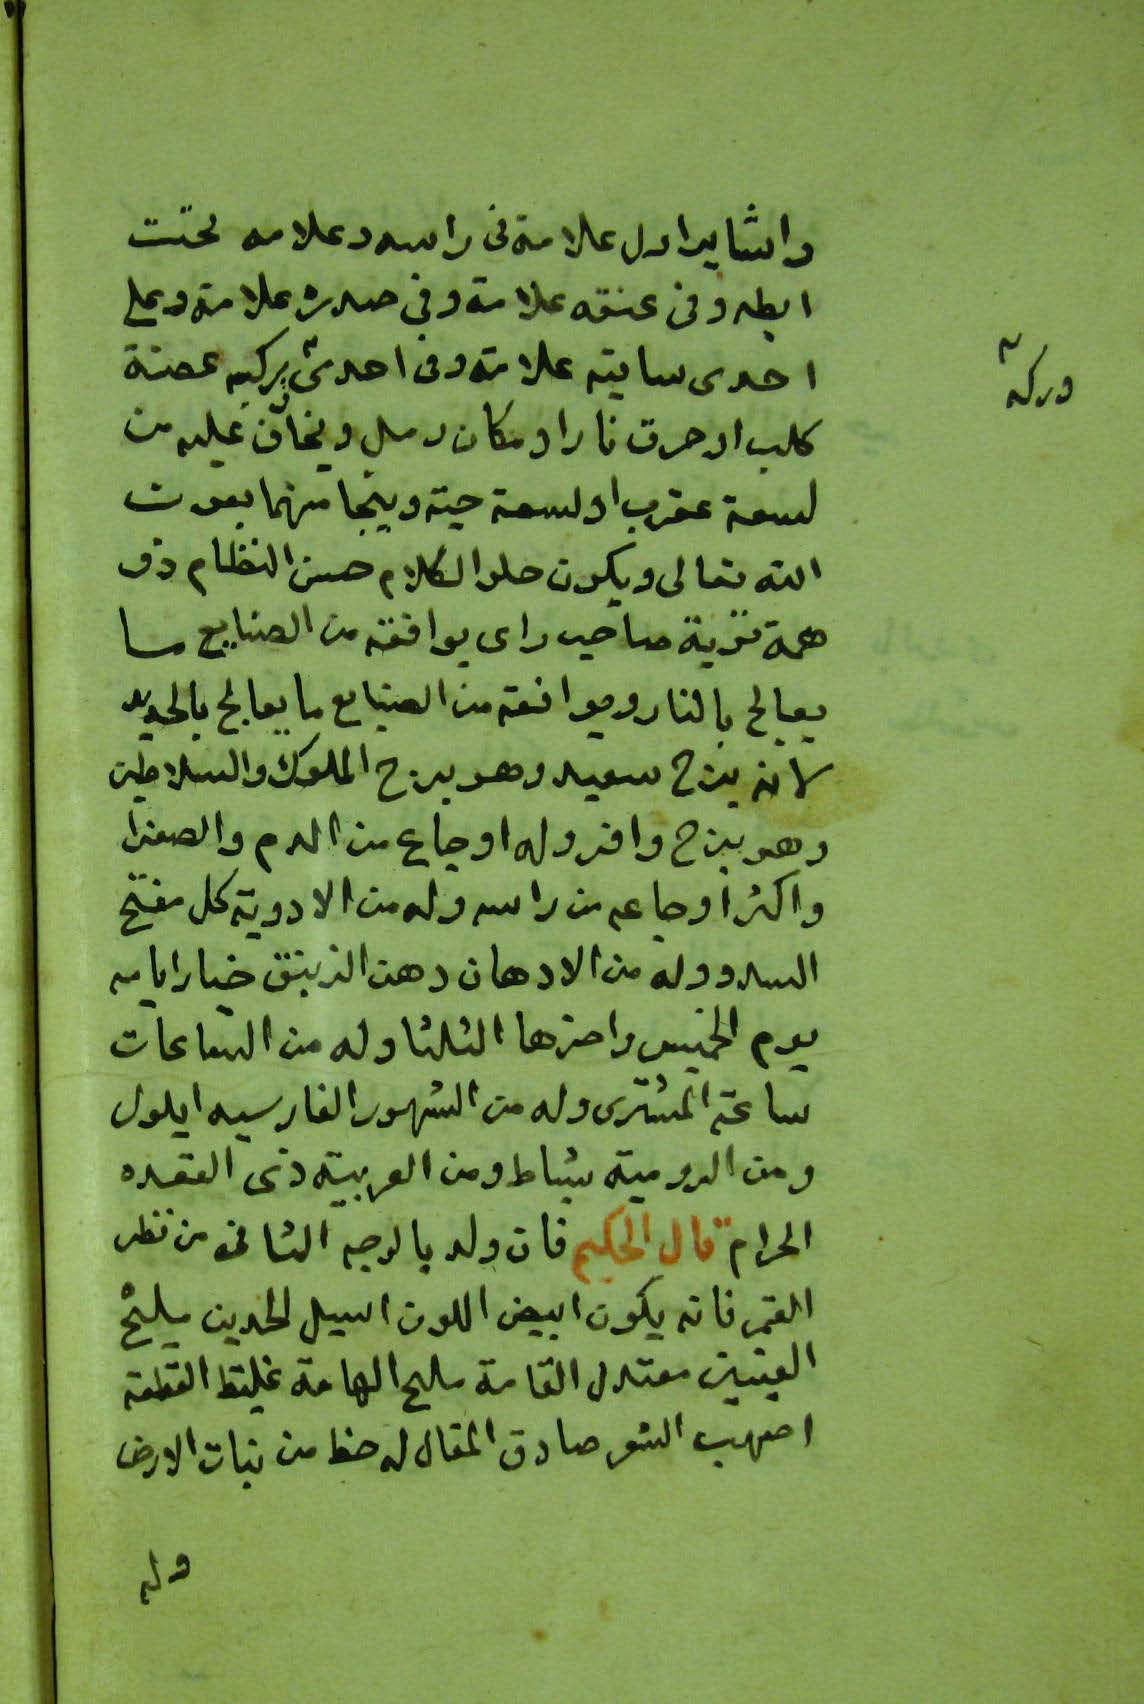 علامة فى راسه وعلامه تحت
ابطه وفى عنقه علامة وفى صدره علامة وعلى
احدى ساقيه علامة وفى احدى بركبه عضة
وركه
كلب او حرق نار او مكان دمل ويخاف عليه من
لسعة عقرب او لسعة حية وينجا منهما بعون
الله تعالى ويكون حلو الكلام حسن النظام ذو
همة قوية صاحب راى يوافقه من الصنايع ما
يعالج بالنار ويوافقه من الصنايع ما يعالج بالحديد
لانه برج سعيد وهو برج الملوك والسلاطين
وهو برج وافر وله اوجاع من الدم والصفرا
واكثر اوجاعه من راسه وله من الادوية كل مفتح
السدد وله من الادهان دهن الزنبق خيار ايامه
يوم الخميس واحذرها الثلثا وله من الساعات
ساعة المشترى وله من الشهور الفارسيه ايلول
ومن الرومية شباط ومن العربية ذى القعده
الحرام قال الحكيم فان ولد بالوجه الثانى من نظر
القمر فانه يكون ابيض اللون اسيل الخدين مليح
العينين معتدل القامة مليح الهامة غليظ القطعه
اصهب الشعر صادق المقال له حظ من نبات الارض
وله